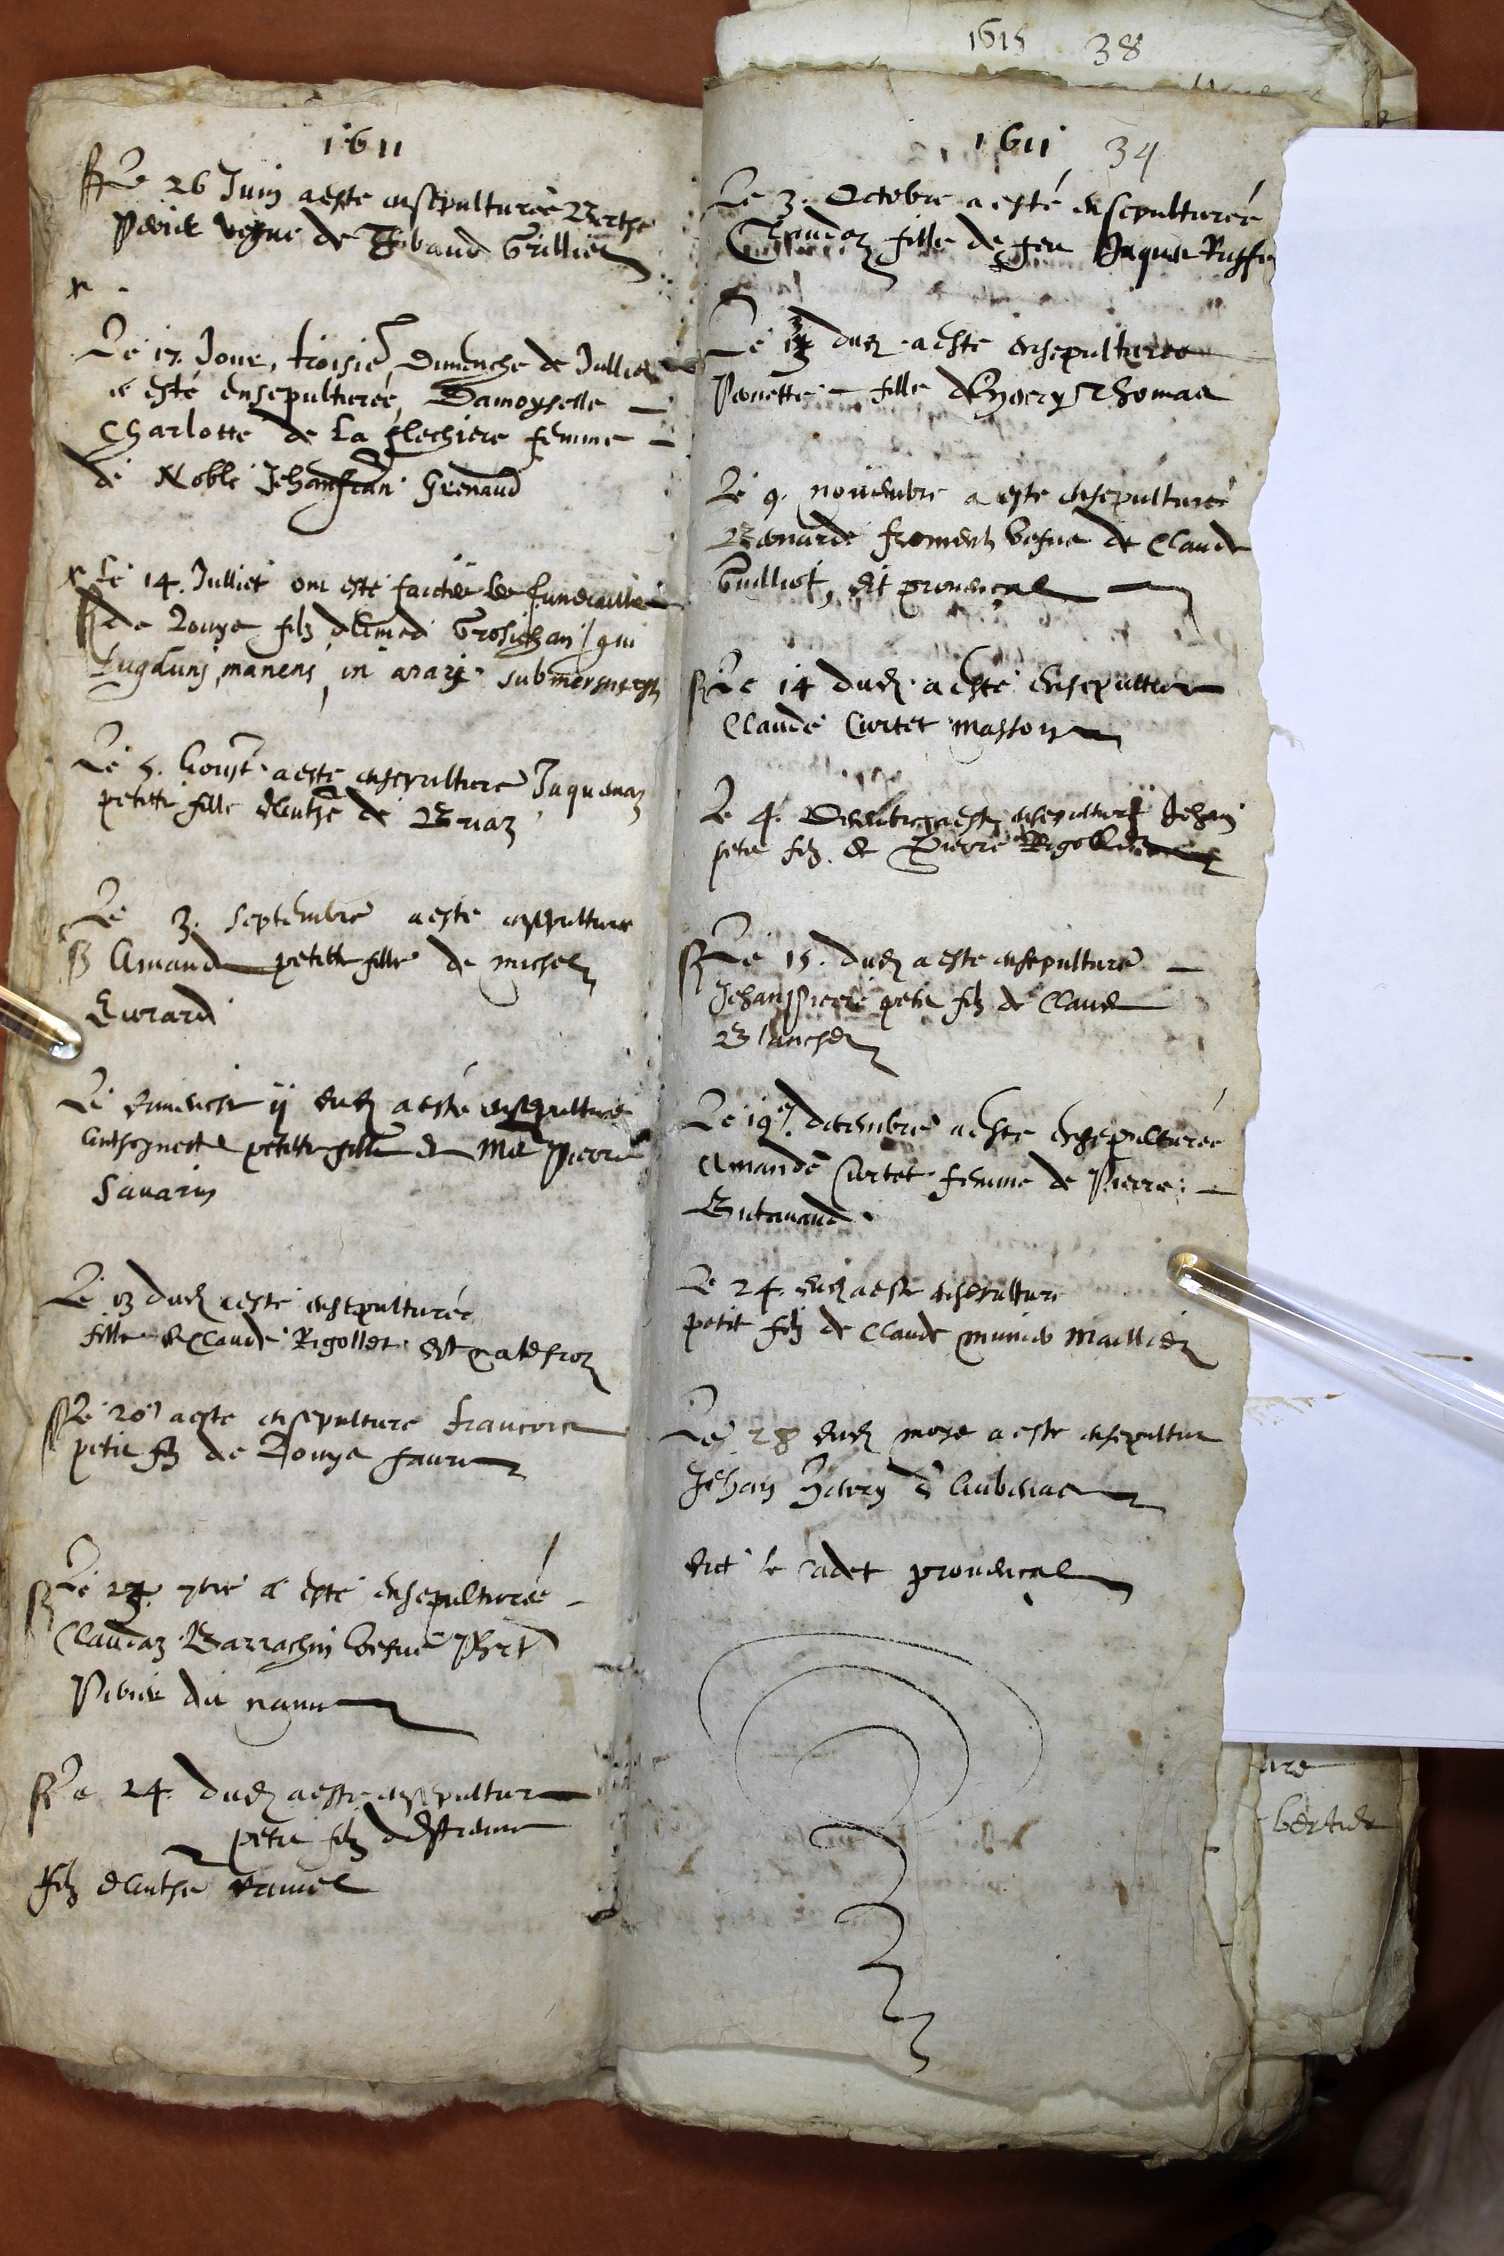 1611
Le 26 Juin a este ensepulturée Berthe
vefue de Thibaud Grillie
Le 17. Jour, troisie Dimenche de Jullie
a esté ensepulturée, Damoyselle
Charlotte de La flechiere femme
de Noble Jehanfran Grenaud
Le 14. Julliet ont esté faictes les funerailles
de Louys filz d'Aimed Grosjehan, qui
Lugduni manens, in arari submersus est
Le 5. Aoust a este ensepulture Jaquemaz
petitte fille d'Anthe de Briaz
Le 3. septembre a este ensepulture
Amand petitte fille de michel
Eurard
Le dimenche ij dud a esté ensepulture
Anthoynette petitte fille de Me Pierre
Sauarin
Le 13 dud a este ensepulturée
fille de Claude Rigollet dit
Le 20 a este ensepulture francois
petit filz de Louys faure
Le 7bre a esté ensepulturée
Claudaz Barrachin vefue
dit
Le 24. dud a este ensepulture
petit filz
filz d'Anthe
1615 38
1611 34
Le 3. Octobre a esté ensepulturée
Claudaz fille de feu Jaques
Le dud a este ensepulturee
Pernette fille d'Thomas
Le 9. nouembre a este ensepulturee
Bernarde froment vefue de Claude
Guilliot, dit prouençal
Le 14 dud a esté ensepulture
Claude Curtet masson
Le 4. a este ensepulture Jehan
petit filz de Pierre Rigollet
Le 15. dud a este ensepulture
Jehan Pierre petit filz de Claude
Blanchet
Le 19e decembre a este ensepulturée
Amande Curtet femme de Pierre
Le 24. dud a este ensepulture
petit filz de Claude
Le 28 dud moys a este ensepulture
Jehan d'Aubenas
dict le Cadet prouençal